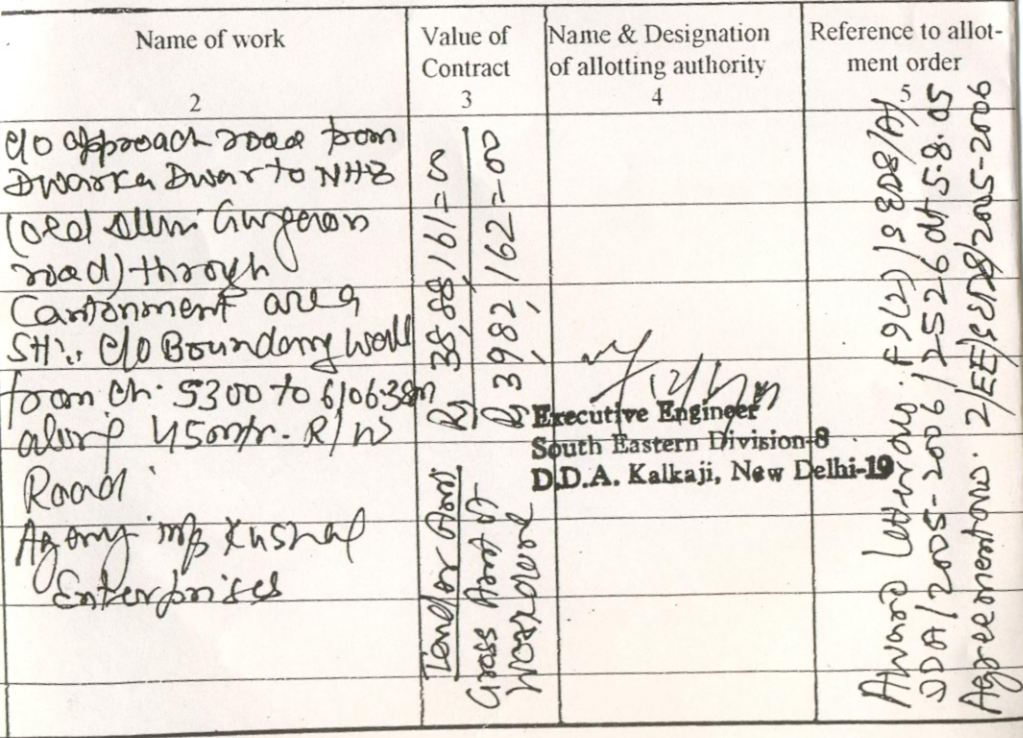 Name of work
2
Value of
Contract
3
Name & Designation
of allotting authority
4
Reference to allot-
ment order
5
C/O approach road from
Dwarka Dwar to NH8
(old Delhi Gurgaon
road) through
Cantonment area
SH:. C/O Boundary Wall
from ch. 5300 to 6106.38m
along 45 mtr. R/W
Road
Agency M/s Kushal
Enterprises
Tender Amt Rs 38,88,161=00
Gross Amt of Rs 39,82,162=00
Workdone
Executive Engineer
South Eastern Division-8
D.D.A. Kalkaji, New Delhi-19
Award Letter No. F9(2)/SED8/A/
DDA/2005-2006/2526 dt 5.8.05
Agreement No. 2/EE/SED8/2005-2006